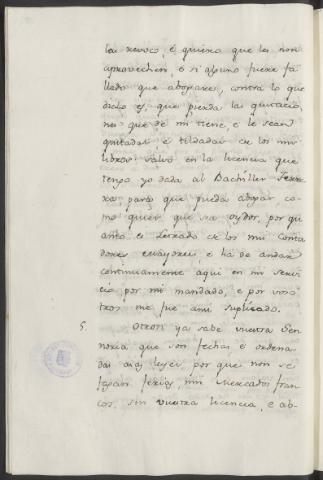 las revoco, é quiero que les non
aprovechen, é si alguno fuere fa-
llado que abogare, contra lo que
dicho es, que pierda las quitacio-
nes que de mi tiene, e le sean
quitadas é tildadas de los mis
libros: salvo en la licencia que
tengo yo dada al Bachiller
para que pueda abogar co-
mo quier que sea oydor, por qu
anto es letrado de los mis conta
dores mayores, e ha de andar
continuamente aqui en mi servi
cio por mi mandado, e por voso
tros me fue ami suplicado.
5. Otrosi ya sabe vuestra Sen
noria que son fechas é ordena
das leyes, por que non se
fagan ferias, nin Mercados fran
cos, sin vuestra licencia, e ab-